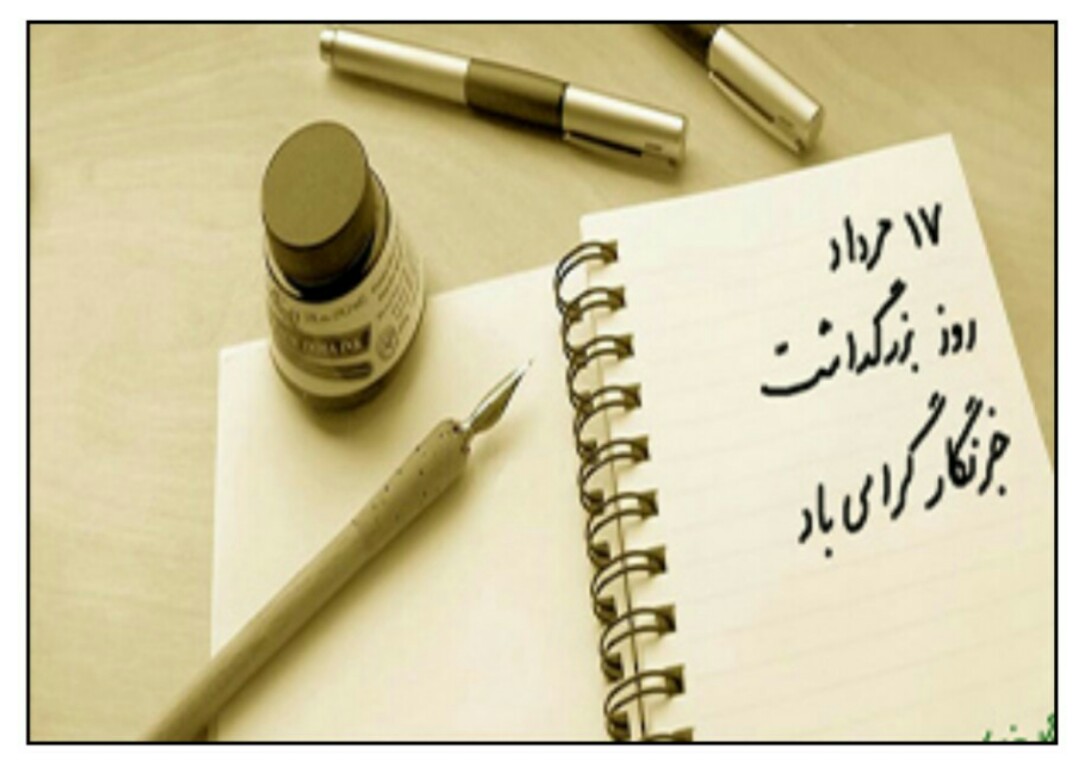 ۱۷ مرداد
روز بزرگداشت
خبرنگار گرامی باد